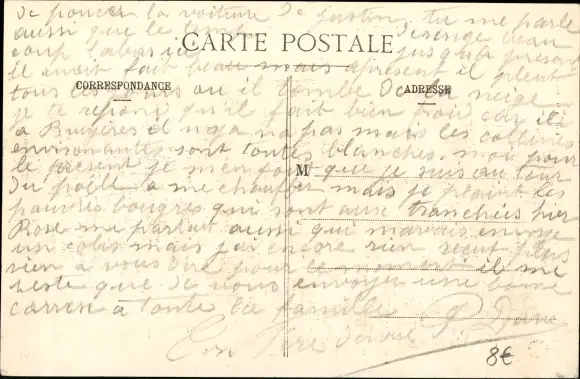 de pousser la voiture de Justin, tu me parle
aussi que le temps derenge beau
CARTE POSTALE
coup labas ici jusqua present
il avait fait beau mais apresent il pleut
CORRESPONDANCE
ADRESSE
tous les jours ou il tombe de la neige
je te repond qu'il fait bien froid car ici
a Bruyères il n'y a pas mais les collines
environantes sont toutes blanches. moi pour
le present je m'en fou que je suis au tour
M
du poele a me chauffer mais je plaint les
pauvres bougres qui sont aux tranchées hier
Rose me parlait aussi qui mavais envoye
un colis mais j'ai encore rien recut plus
rien a vous dire pour le moment il me
reste que de vous envoyer une bonne
carress a toute la famille
Ton frere P.
8€